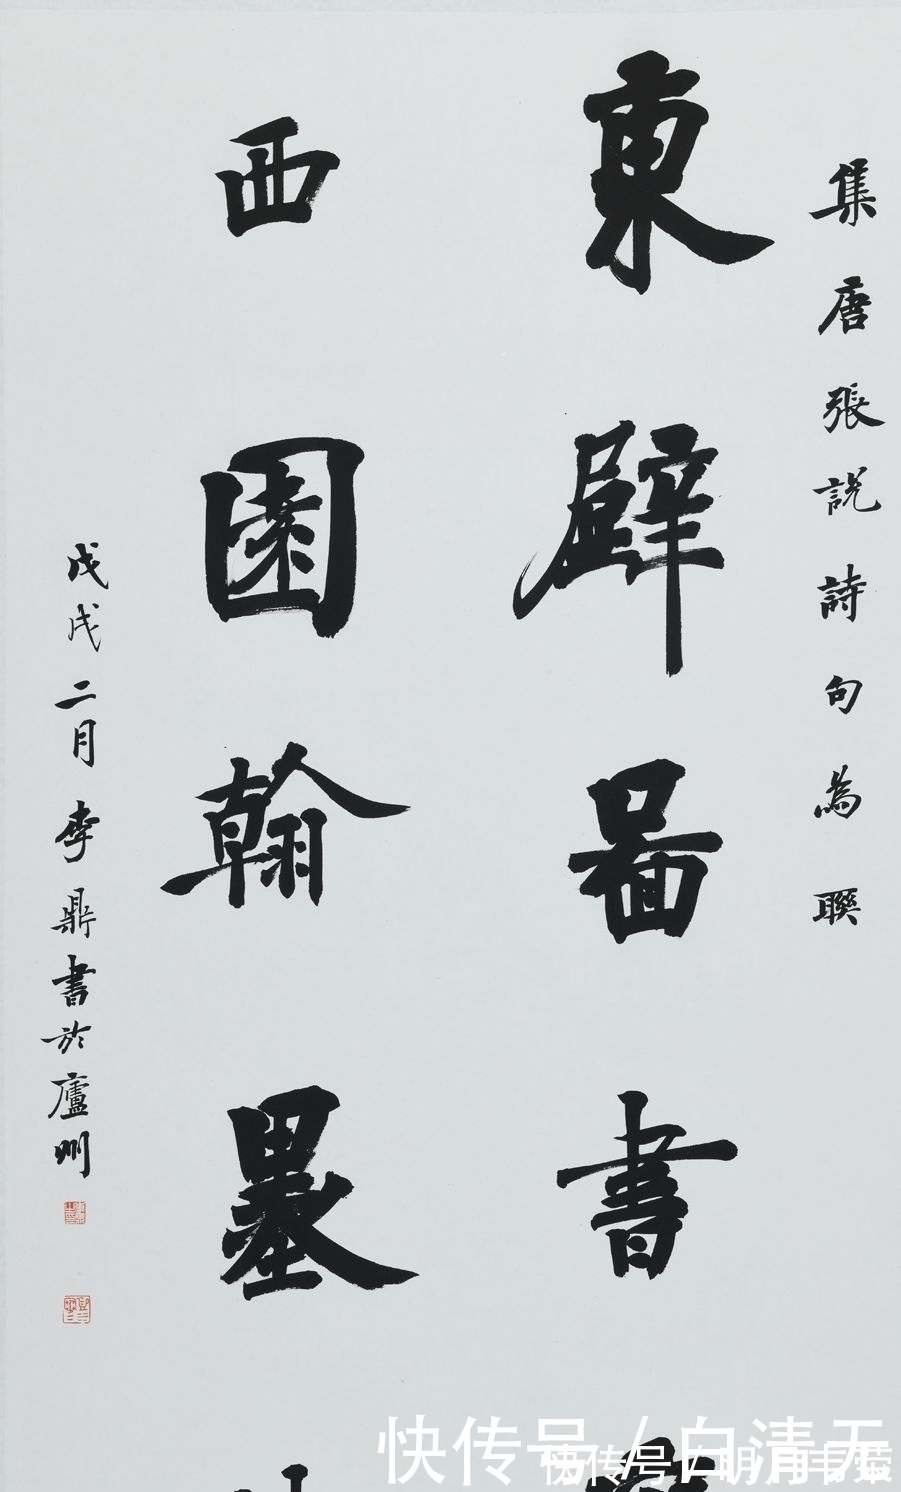 集唐張説詩句為聯
東壁啚書
西園翰墨
戊戌二月李鼎書於廬州
快传号 / 白清无